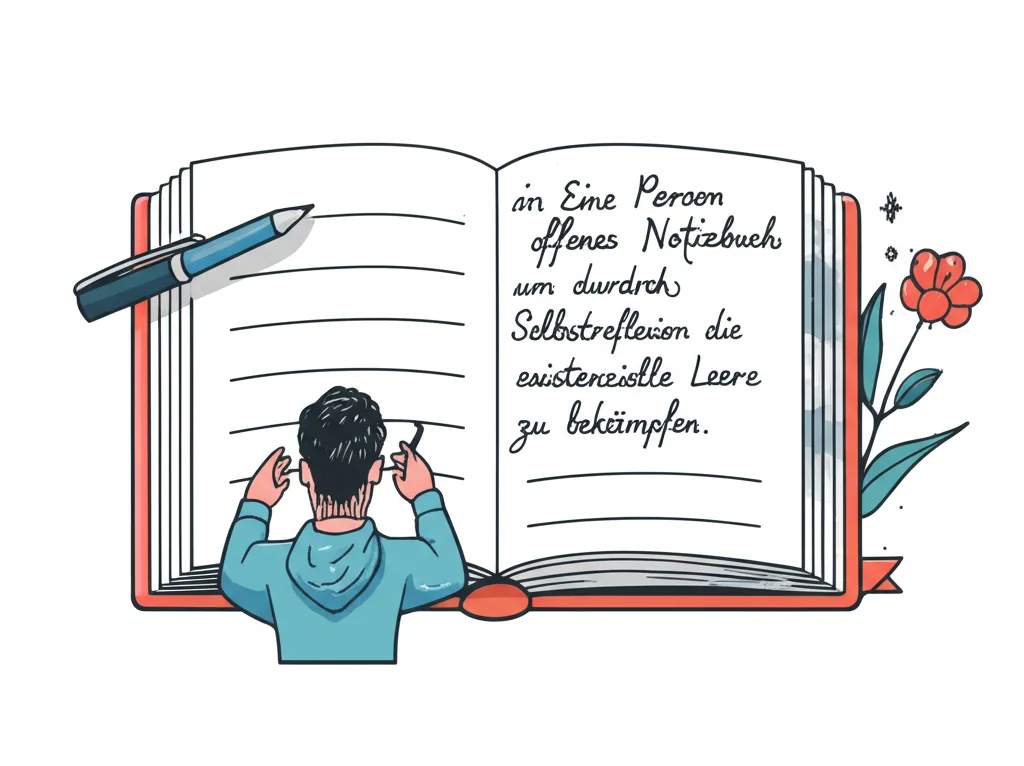 in Eine Peroen
offenes Notizbuch
um durdrch
Selbstreflexion die
existenzistlle Leere
zu bekämpfen.